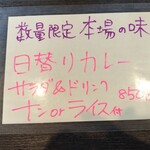 数量限定 本場の味
日替りカレー
サラダ&ドリンク 850
ナンorライス付